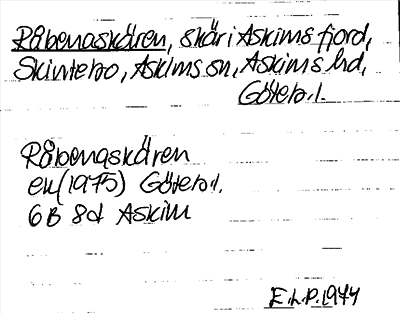 Råbenaskären, skär i Askims fjord,
Skintebo, Askims sn, Askims hd,
Göteb.l.
Råbenaskären
ek (1975) Göteb.l.
6B 8d Askim
E.L.P. 1944